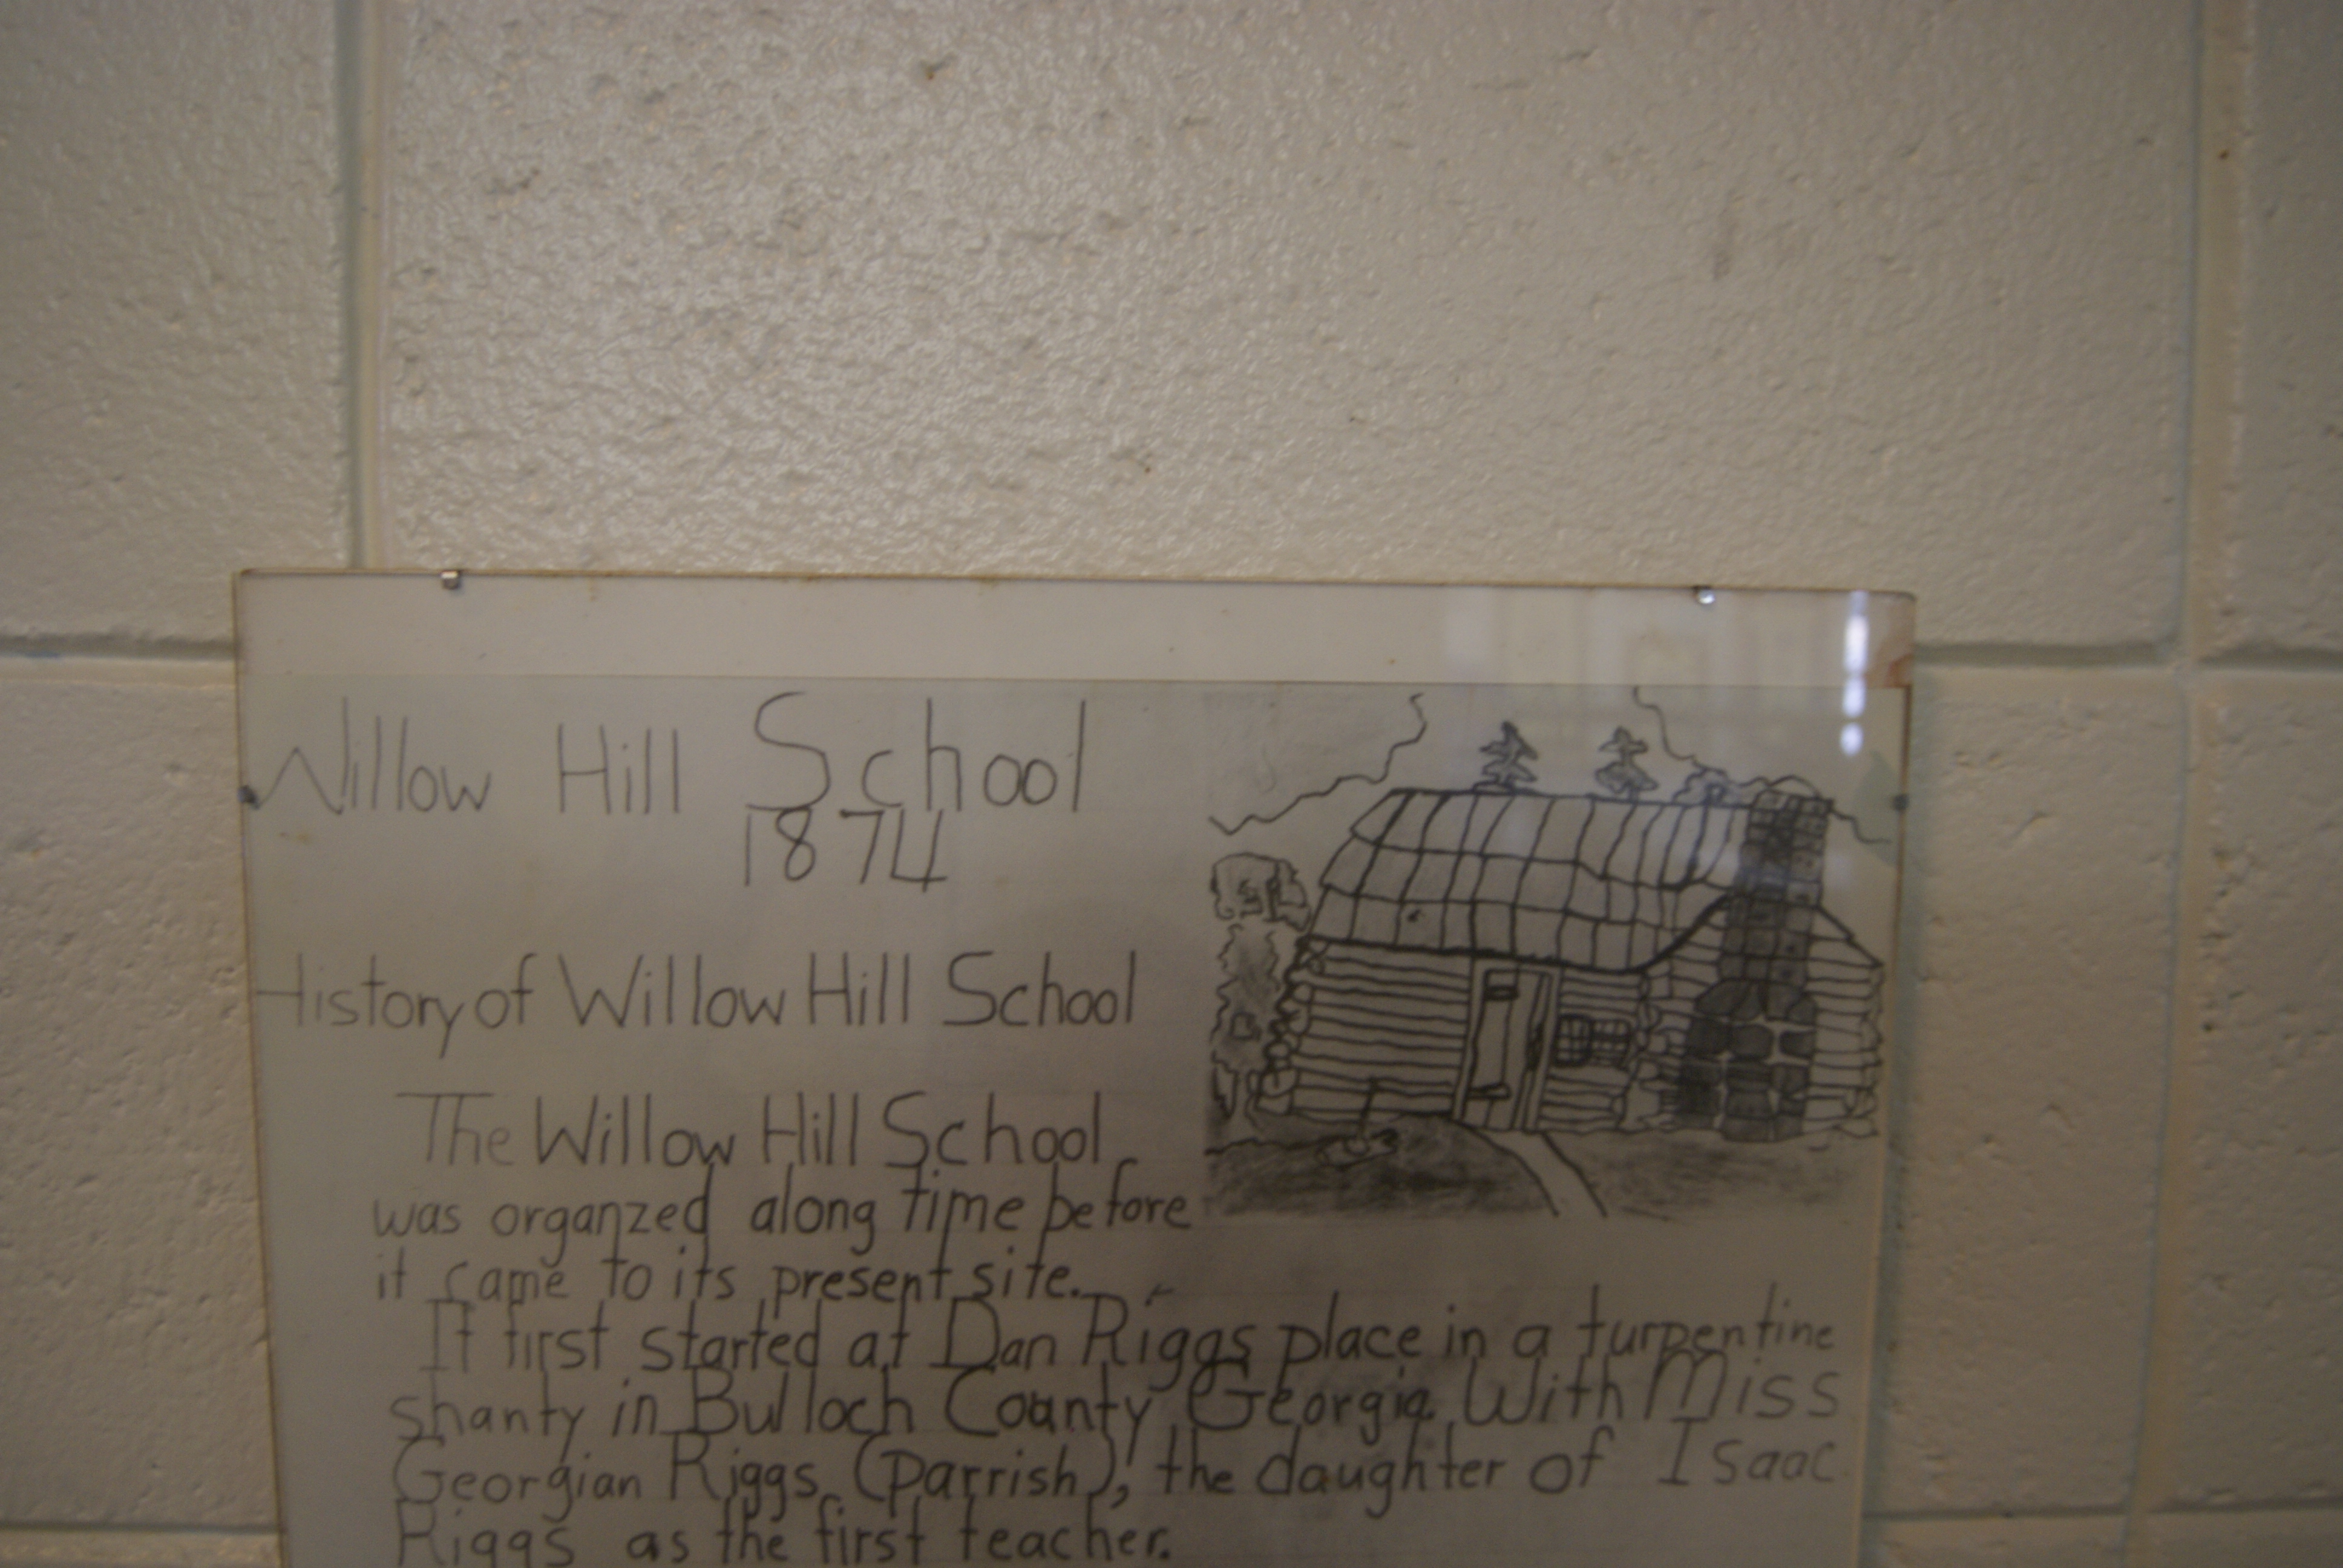 Willow Hill School
1874
History of Willow Hill School
The Willow Hill School
was organzed along time before
it came to its present site.
It first started at Dan Riggs place in a turpentine
shanty in Bulloch County Georgia With Miss
Georgian Riggs (parrish), the daughter of Isaac
Riggs as the first teacher.